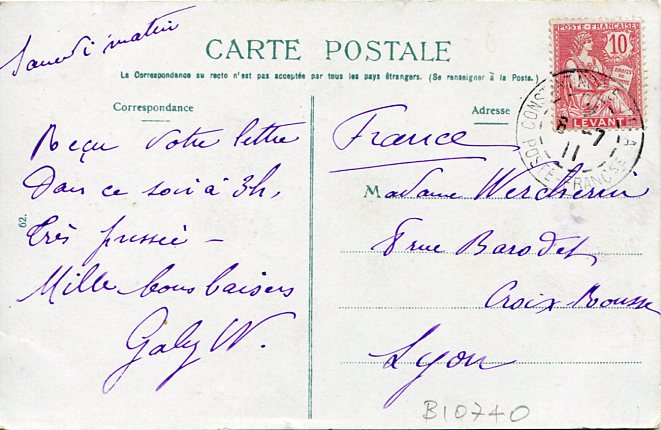 Samedi matin
CARTE POSTALE
La Correspondance au recto n'est pas acceptée par tous les pays étrangers. (Se renseigner à la Poste.)
Correspondance
Reçu votre lettre
Dans ce soir à 3h,
très pressée —
Mille bons baisers
Gaby W.
62.
Adresse
France
Madame Wercherin
8 rue Barodet
Croix Rousse
Lyon
POSTE FRANÇAISE
10
LEVANT
6 -7
11
POSTE FRANCSE
B10740